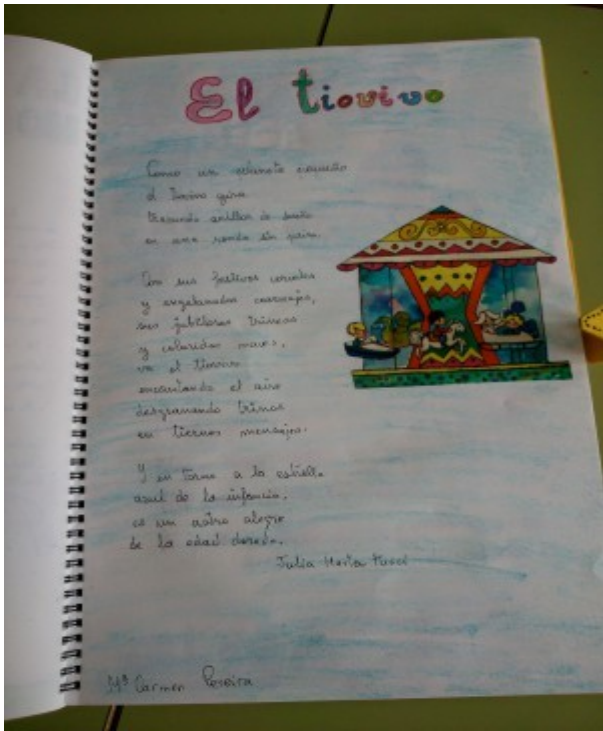 El tiovivo
Como un planeta pequeño
el tiovivo gira
trazando anillos de sueño
en una ronda sin prisa.
Con sus festivos corceles
y engalanados carruajes,
sus jubilosos trineos
y coloridas naves,
va el tiovivo
encantando el aire
desgranando trinos
en tiernos mensajes.
Y en torno a la estrella
azul de la infancia,
es un astro alegre
de la edad dorada.
Julia
Mª Carmen Pereira